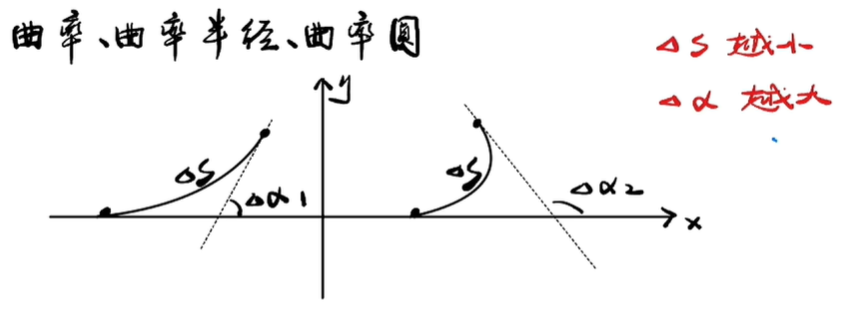 曲率、曲率半径、曲率圆
ΔS 越小
Δα 越大
y
ΔS
Δα1
ΔS
Δα2
x